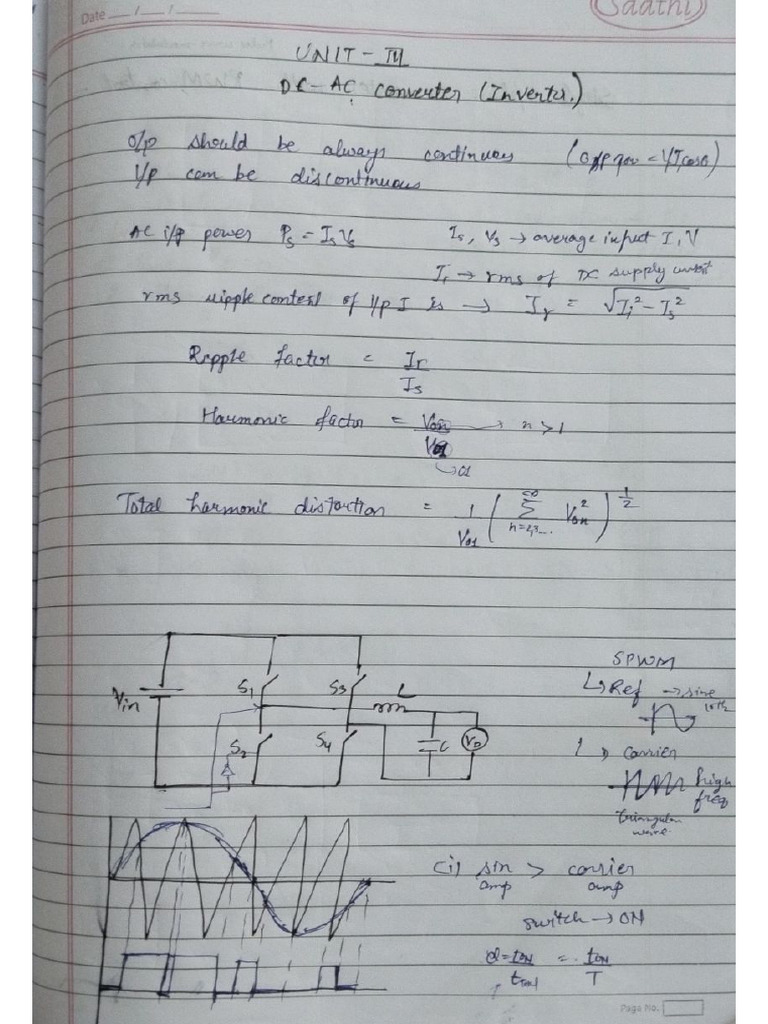 Date __/__/__
Saathi
UNIT - III
DC - AC Converter (Inverter.)
O/p should be always continuous
I/p can be discontinuous
AC i/p power Ps = IsVs Is, Vs → average input I, V
Ii → rms of DC supply current
rms ripple content of I/p I is → Ir = √Ii² - Is²
Ripple factor = Ir
Is
Harmonic factor = Von → n > 1
Vo1
Total harmonic distortion = 1/Vo1 ( ∞ Σ n=2,3... Von² ) 1/2
Vin
S1
S3
L
S2
S4
C
Vo
SPWM
Ref → sine
Carrier
high freq
triangular wave
(i) sin amp > carrier amp
switch → ON
d = tON/tTotal = tON/T
Page No.